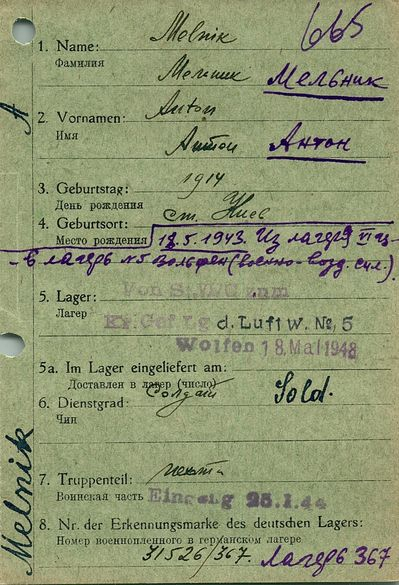 Melnik 665
1. Name:
Фамилия
Мельник Мельник
A
2. Vornamen: Anton
Имя
Антон Антон
3. Geburtstag: 1914
День рождения
4. Geburtsort: ст. Киев
Место рождения 18.5.1943. Из лагеря VI
в лагерь №5 Вольфен (военно-возд. сил.).
5. Lager: Von S
Лагер Kr. Gef. Lg. d. Luftw. No. 5
Wolfen 18. Mai 1943
5a. Im Lager eingeliefert am:
Доставлен в лагер (число)
6. Dienstgrad: Солдат Sold.
Чин
7. Truppenteil: пехота
Воинская часть Eingang 25.1.44
8. Nr. der Erkennungsmarke des deutschen Lagers:
Номер военнопленного в германском лагере
31526/367. Лагерь 367
Melnik